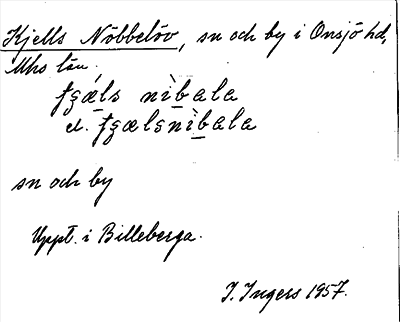 Kjells Nöbbelöv, sn och by i Onsjö hd,
Mhs län.
sn och by
Uppt. i Billeberga.
I. Ingers 1957.